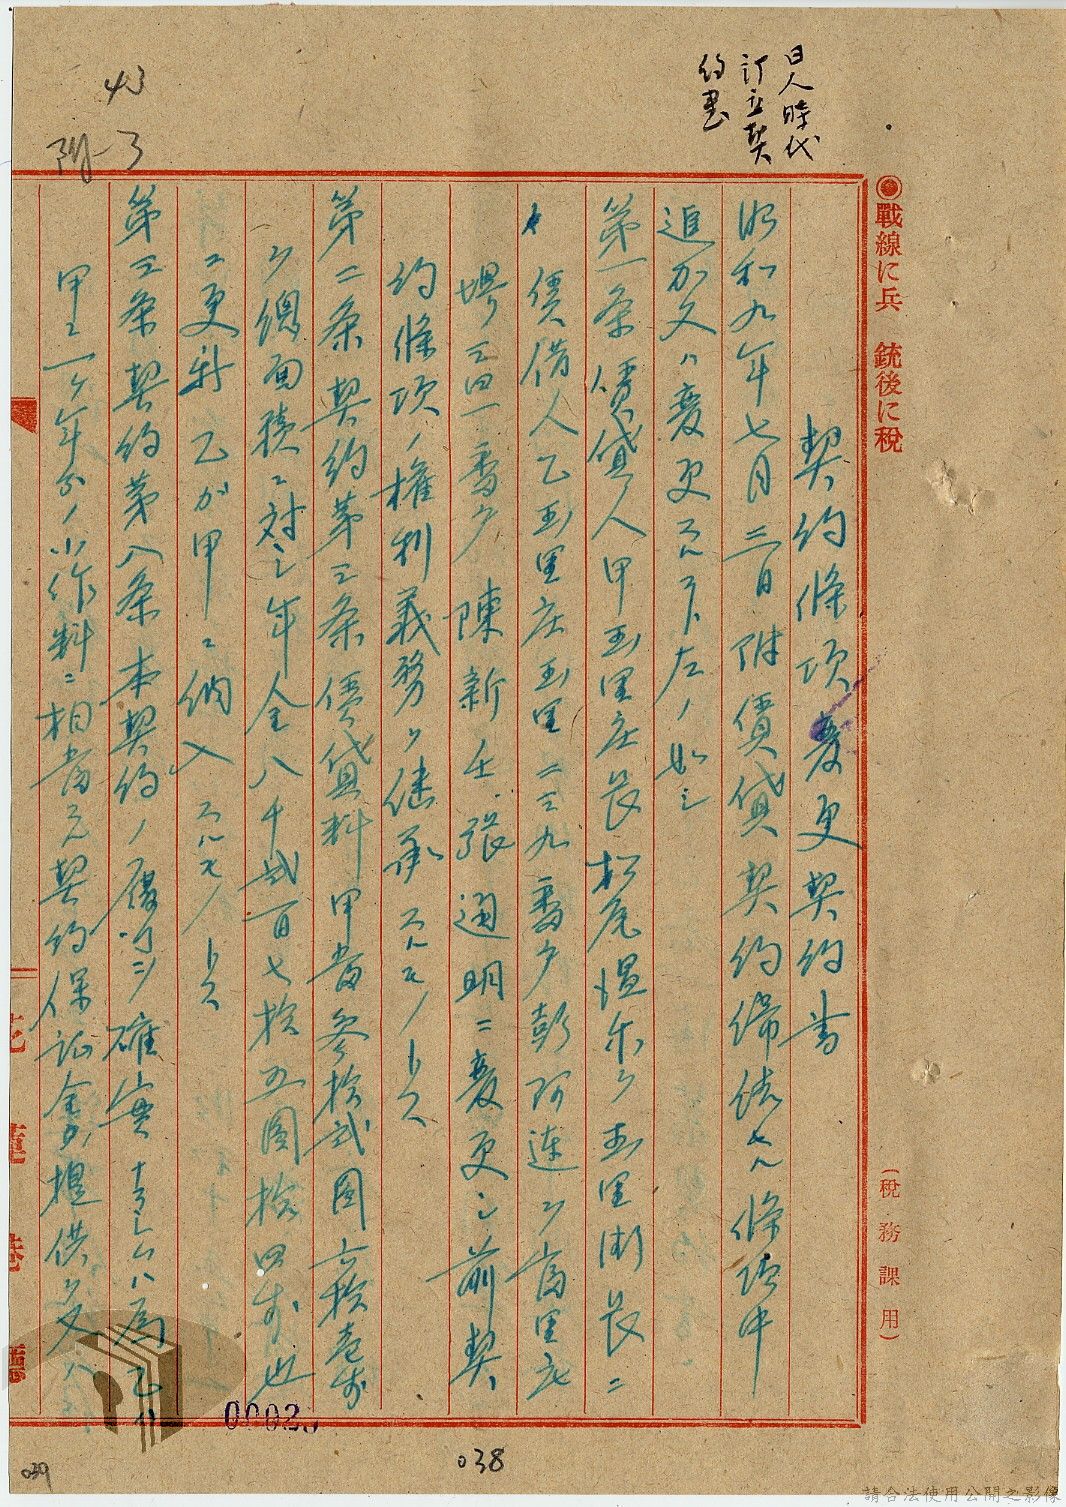 日人時代
訂立契
約書
43
附-3
◉戰線に兵 銃後に稅
(稅務課用)
契約條項変更契約書
昭和九年七月三日附賃貸契約締結セル條項中
追加又ハ変更スルコト左ノ如シ
第一条 賃貸人甲玉里庄長松尾温尔ヲ玉里街長ニ
賃借人乙玉里庄玉里二三九番戶彭阿連ヲ富里庄
堺三四一番戶陳新壬、張迺明ニ変更シ前契
約條項ノ權利義務ヲ継承スルモノトス
第二条 契約第三条賃貸料甲當參拾貳圓六拾壱錢
ヲ總面積ニ対シ年金八千貳百七拾五圓拾四錢也
ニ更新乙ガ甲ニ納入スルモノトス
第三条 契約第八条本契約ノ履行ヲ確実ナラシムル為乙ハ
甲ニ一ヶ年分ノ小作料ニ相當スル契約保証金ヲ提供シ
花蓮港廳
00023
038
039
請合法使用公開之影像